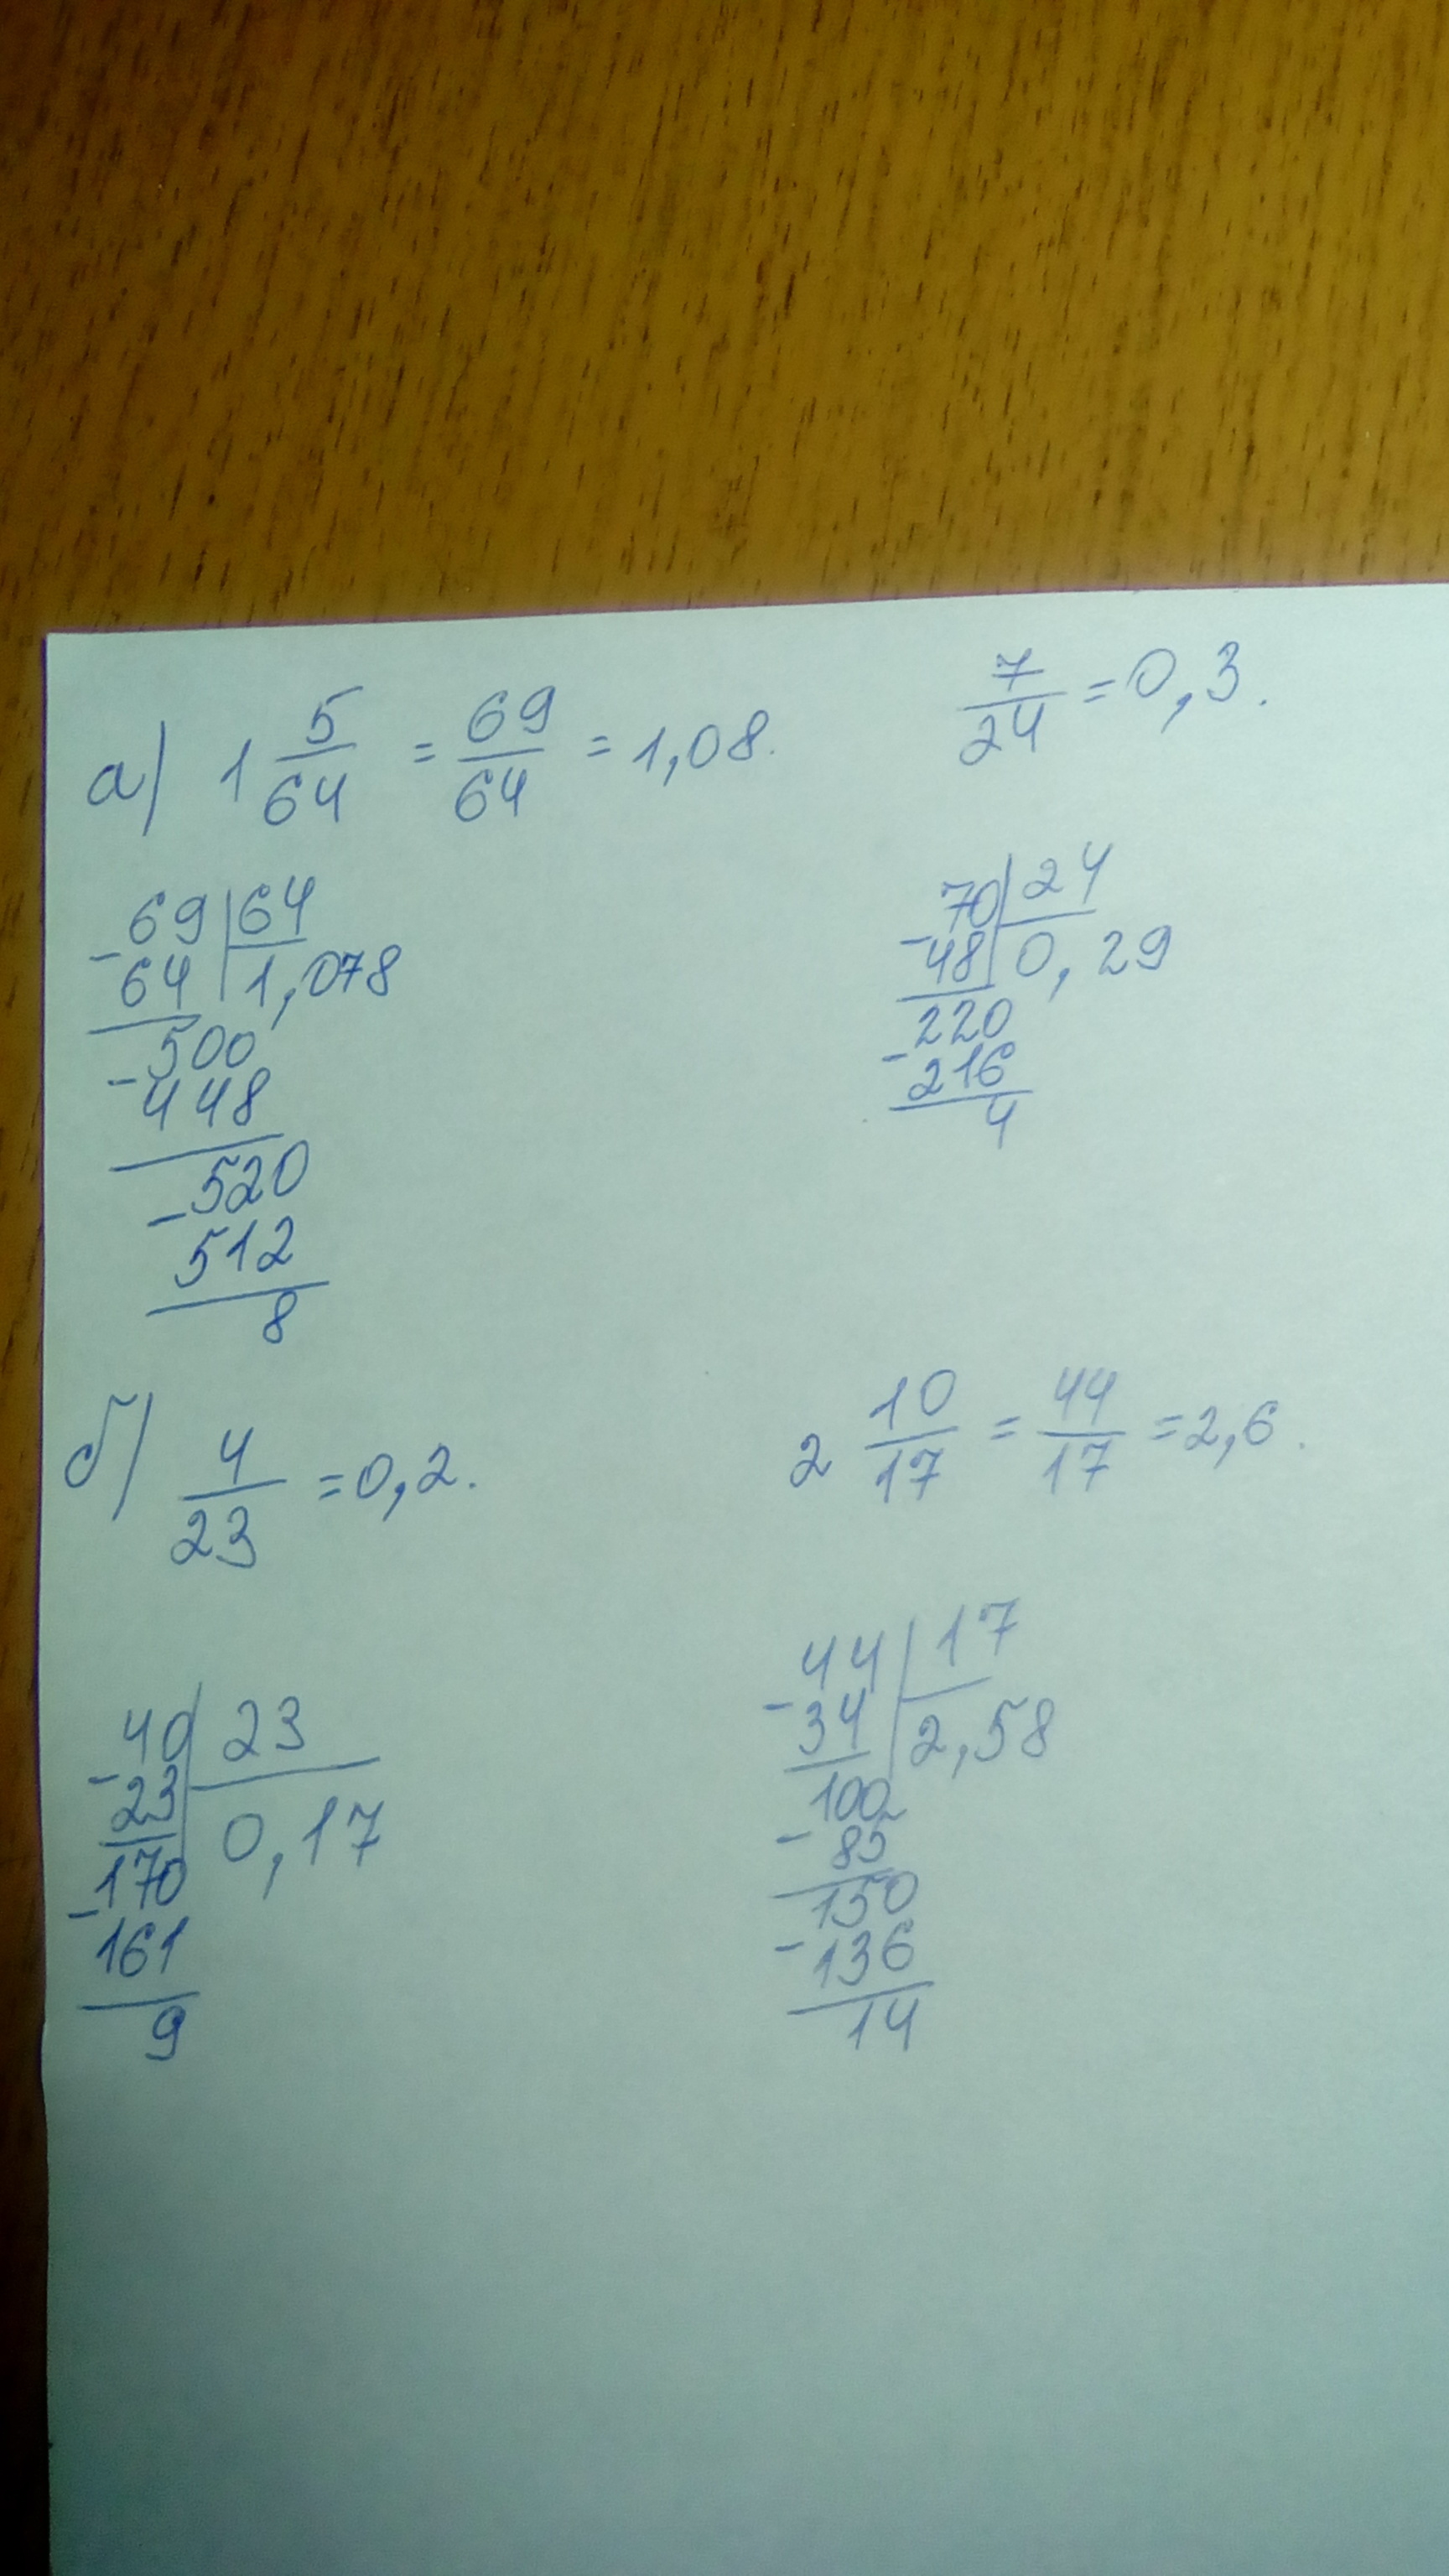 а) 1 5/64 = 69/64 = 1,08.
7/24 = 0,3.
69 | 64
- 64 | 1,078
500
- 448
520
- 512
8
70 | 24
- 48 | 0,29
220
- 216
4
б) 4/23 = 0,2.
2 10/17 = 44/17 = 2,6.
40 | 23
- 23 | 0,17
170
- 161
9
44 | 17
- 34 | 2,58
100
- 85
150
- 136
14